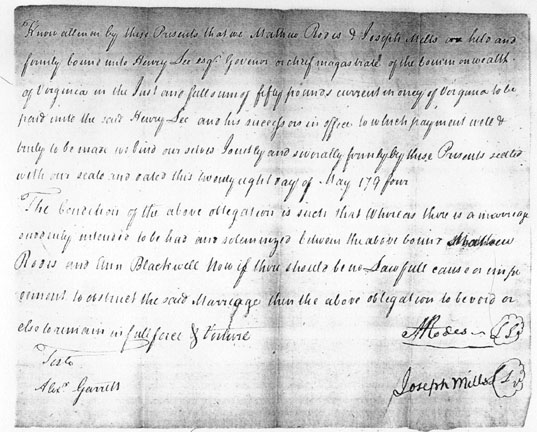 Know all men by these Presents that we Mathew Rodes & Joseph Mills are held and
firmly bound unto Henry Lee esqr. Govenor or chief magastrate of the commonwealth
of Verginia in the Just and full sum of fifty pounds current money of Verginia to be
paid unto the said Henry Lee and his successors in office to which payment well &
truly to be made we bind our selves Jointly and severally firmly by these Presents sealed
with our seals and dated this twenty eight day of May 179 four
The Condition of the above obligation is such that Whereas there is a marriage
suddenly intended to be had and solemnized between the above bound Mathew
Rodes and Ann Blackwell Now if there should be no Lawfull cause or
to obstruct the said Marriage then the above obligation to be void or
else to remain in full force & virtue
MRodes LS
Teste
Alexr. Garrett
Joseph Mills LS